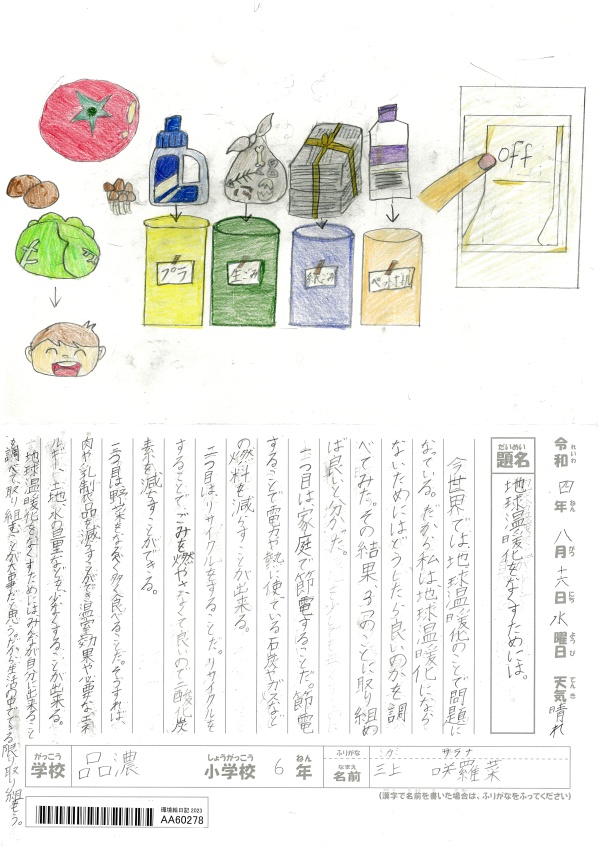 off
プラ
生ごみ
紙ごみ
ペットボトル
令和四年八月十六日水曜日 天気晴れ
れいわ ねん がつ にち ようび てんき
だいめい
題名
地球温暖化をなくすためには。
今世界では、地球温暖化のことで問題に
なっている。だから私は、地球温暖化になら
ないためにはどうしたら良いのかを調
べてみた。その結果、3つのことに取り組め
ば良いと分かった。
一つ目は家庭で節電することだ。節電
することで電力や熱に使っている石炭やガスなど
の燃料を減らすことが出来る。
二つ目はリサイクルをすることだ。リサイクルを
することでごみを燃やさなくて良いので二酸化炭
素を減らすことができる。
三つ目は野菜をなるべく多く食べることだ。そうすれば、
肉や乳製品を減すことができ温室効果や必要なエネ
ルギー、土地、水の量なども少なくすることが出来る。
地球温暖化をなくすためにはみんなが自分に出来ること
を調べて取り組むことが大事だと思う。だから生活の中でできる限り取り組もう。
がっこう
学校
品濃
しょうがっこう
小学校
6
ねん
年
ふりがな
ミカミ サラナ
なまえ
名前
三上 咲羅菜
(漢字で名前を書いた場合は、ふりがなをふってください)
環境絵日記 2023
AA60278